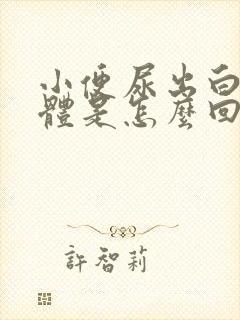 小便尿出白
體是怎麼回
許智莉